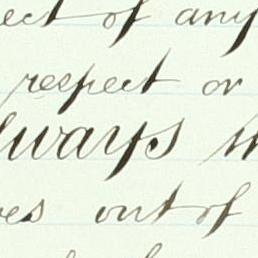 ect of any
respect or
lways
es out of